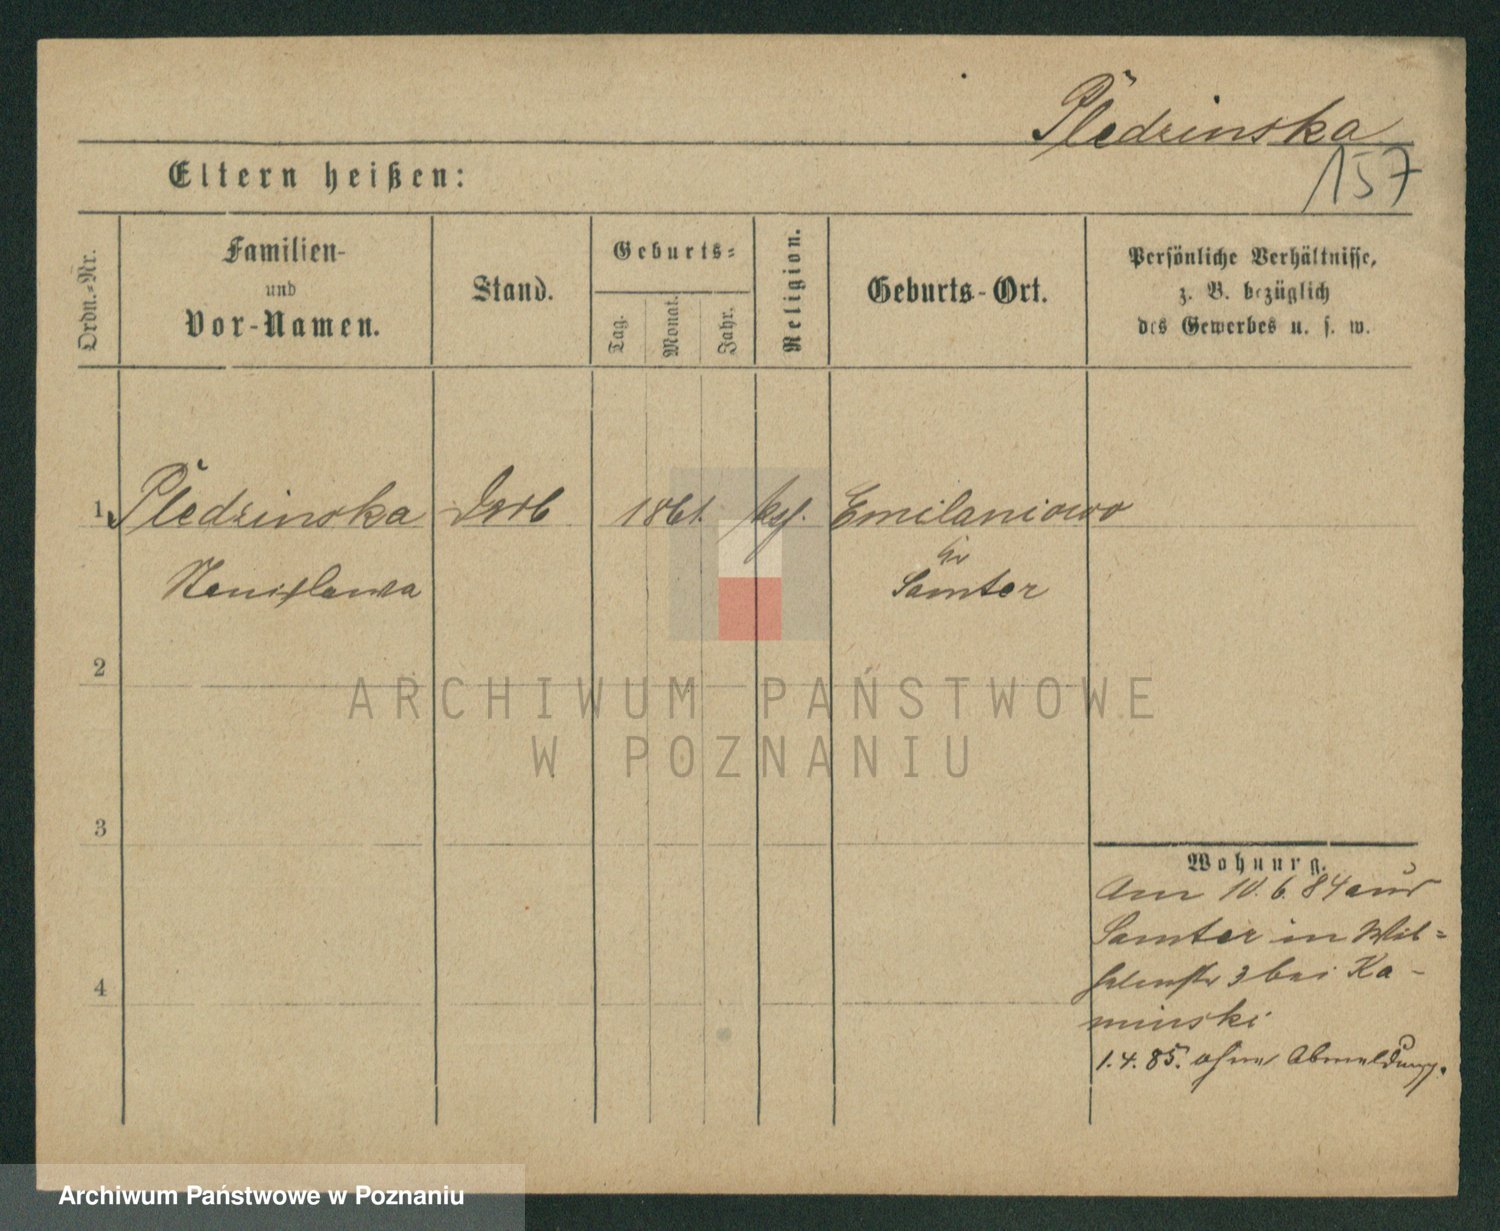 Pledzinska
157
Eltern heißen:
Ordn.=Nr.
Familien-
und
Vor-Namen.
Stand.
Geburts=
Tag.
Monat.
Jahr.
Religion.
Geburts-Ort.
Persönliche Verhältnisse,
z. B. bezüglich
des Gewerbes u. s. w.
1 Pledzinska 1861. Emilaniowo
Stanislawa
Samter
2
3
4
Wohnung.
Am 10. 6. 84 aus
Samter in Wil=
helmstr 3 bei Ka-
minski
1. 4. 85. ohne Abmeldung.
ARCHIWUM PAŃSTWOWE
W POZNANIU
Archiwum Państwowe w Poznaniu